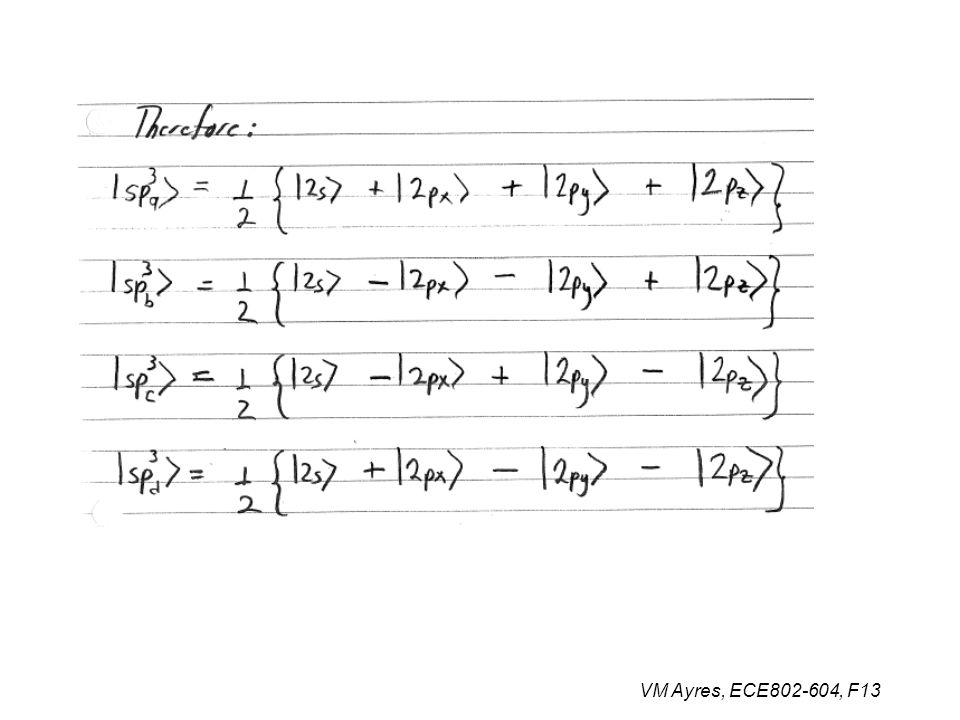 Therefore:
|sp³ₐ⟩ = 1/2 {|2s⟩ + |2pₓ⟩ + |2p_y⟩ + |2p_z⟩}
|sp³_b⟩ = 1/2 {|2s⟩ − |2pₓ⟩ − |2p_y⟩ + |2p_z⟩}
|sp³_c⟩ = 1/2 {|2s⟩ − |2pₓ⟩ + |2p_y⟩ − |2p_z⟩}
|sp³_d⟩ = 1/2 {|2s⟩ + |2pₓ⟩ − |2p_y⟩ − |2p_z⟩}
VM Ayres, ECE802-604, F13